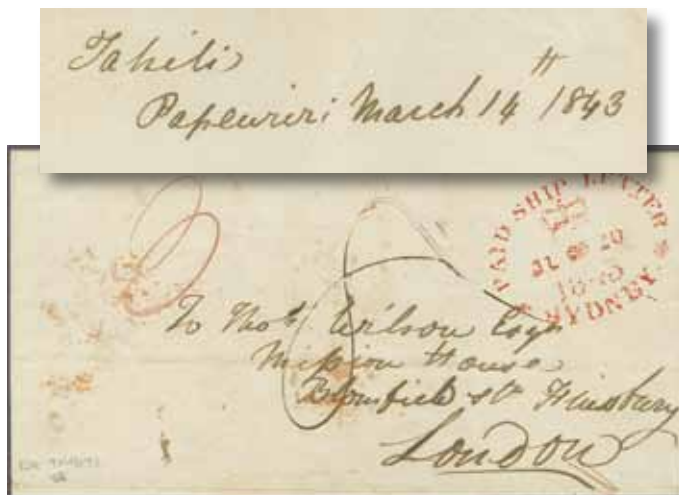 Tahiti
Papeuriri March 14th 1843
PAID SHIP LETTER
JL 20
1843
SYDNEY
8
To Thos. Wilson Esqr
Mission House
Blomfield St Finsbury
London